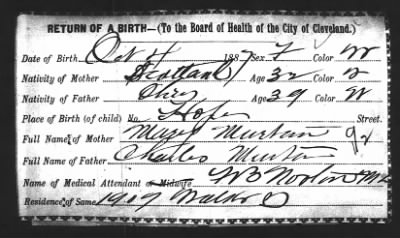 RETURN OF A BIRTH—(To the Board of Health of the City of Cleveland.)
Date of Birth Oct 4 1887 Sex F Color W
Nativity of Mother Scotland Age 32 Color
Nativity of Father Ohio Age 39 Color W
Place of Birth (of child) No. Hope Street.
Full Name of Mother Murton
Full Name of Father Charles Murton
Name of Medical Attendant or Midwife W B Norton MD
Residence of Same 1907